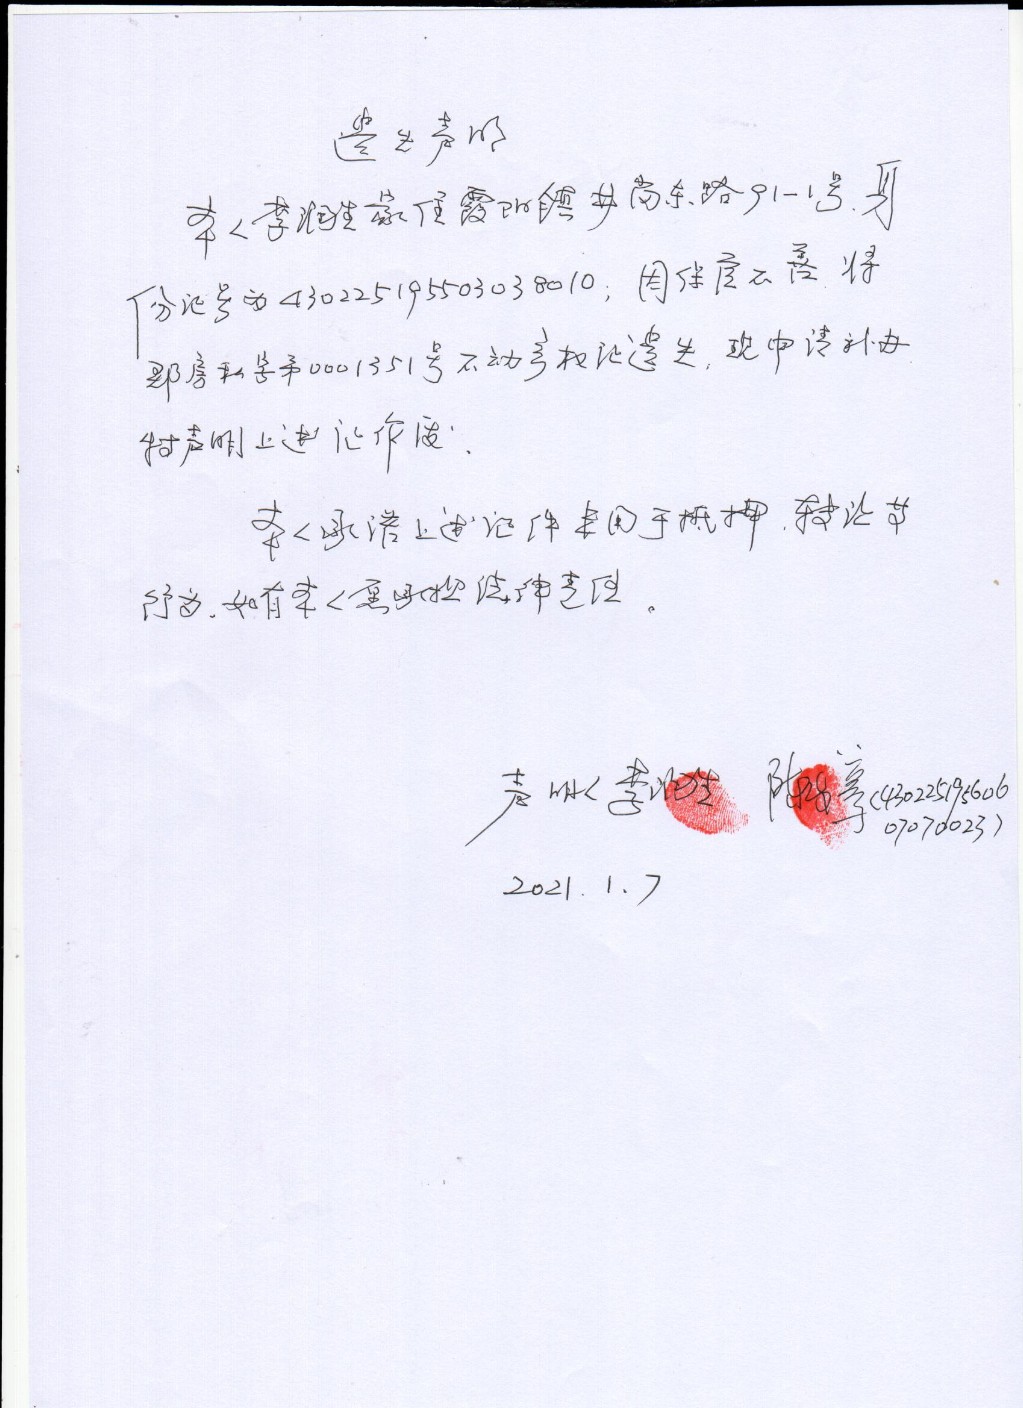 遗失声明
本人李润生家住霞阳镇井岗东路91-1号.身
份证号为430225195503038010,因保管不善.将
酃房私字第0001351号不动产权证遗失.现申请补办.
特声明上述证作废.
本人承诺上述证件未用于抵押.转让等
行为.如有本人愿承担法律责任。
声明人李润生 陈 (430225195606
07070023)
2021.1.7